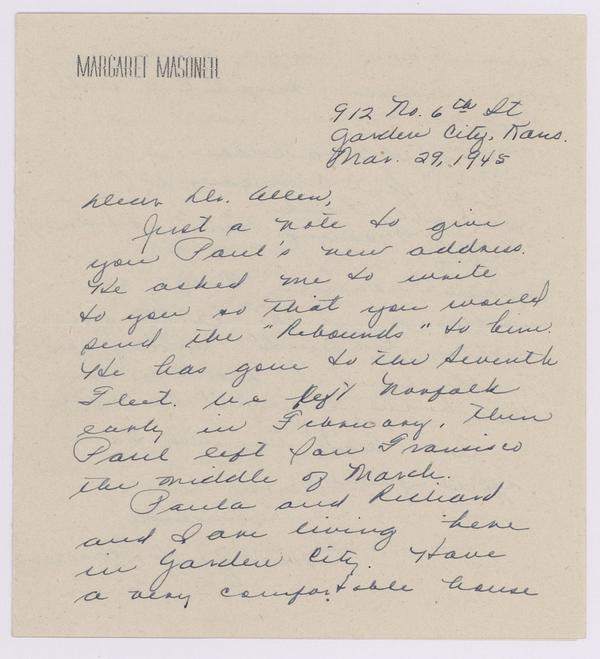 MARGARET MASONER
912 No. 6th St
Garden City, Kans.
Mar. 29, 1945
Dear Dr. Allen,
Just a note to give
you Paul's new address.
He asked me to write
to you so that you would
send the "Rebounds" to him.
He has gone to the Seventh
Fleet. We left Norfolk
early in February, then
Paul left San Fransisco
the middle of March.
Paula and Richard
and I are living here
in Garden City. Have
a very comfortable house